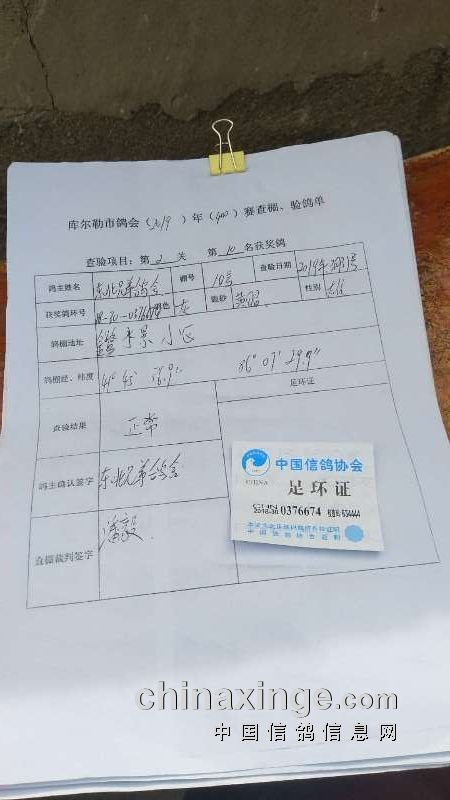 库尔勒市鸽会(2019)年(400)赛查棚、验鸽单
查验项目：第 2 关 第 10 名获奖鸽
鸽主姓名 东北兄弟鸽舍 棚号 10号 查验日期 2019年
获奖鸽环号 羽色 灰 眼砂 黄 性别
鸽棚地址 景小区
鸽棚经、纬度 41° 45' 86° 07' 29.9"
查验结果 正常 足环证
鸽主确认签字 东北兄弟鸽舍
查棚裁判签字 潘毅
中国信鸽协会
CHINA 足环证
CHN
2018-30 0376674
中国信鸽协会监制
chinaxinge.com
中国信鸽信息网